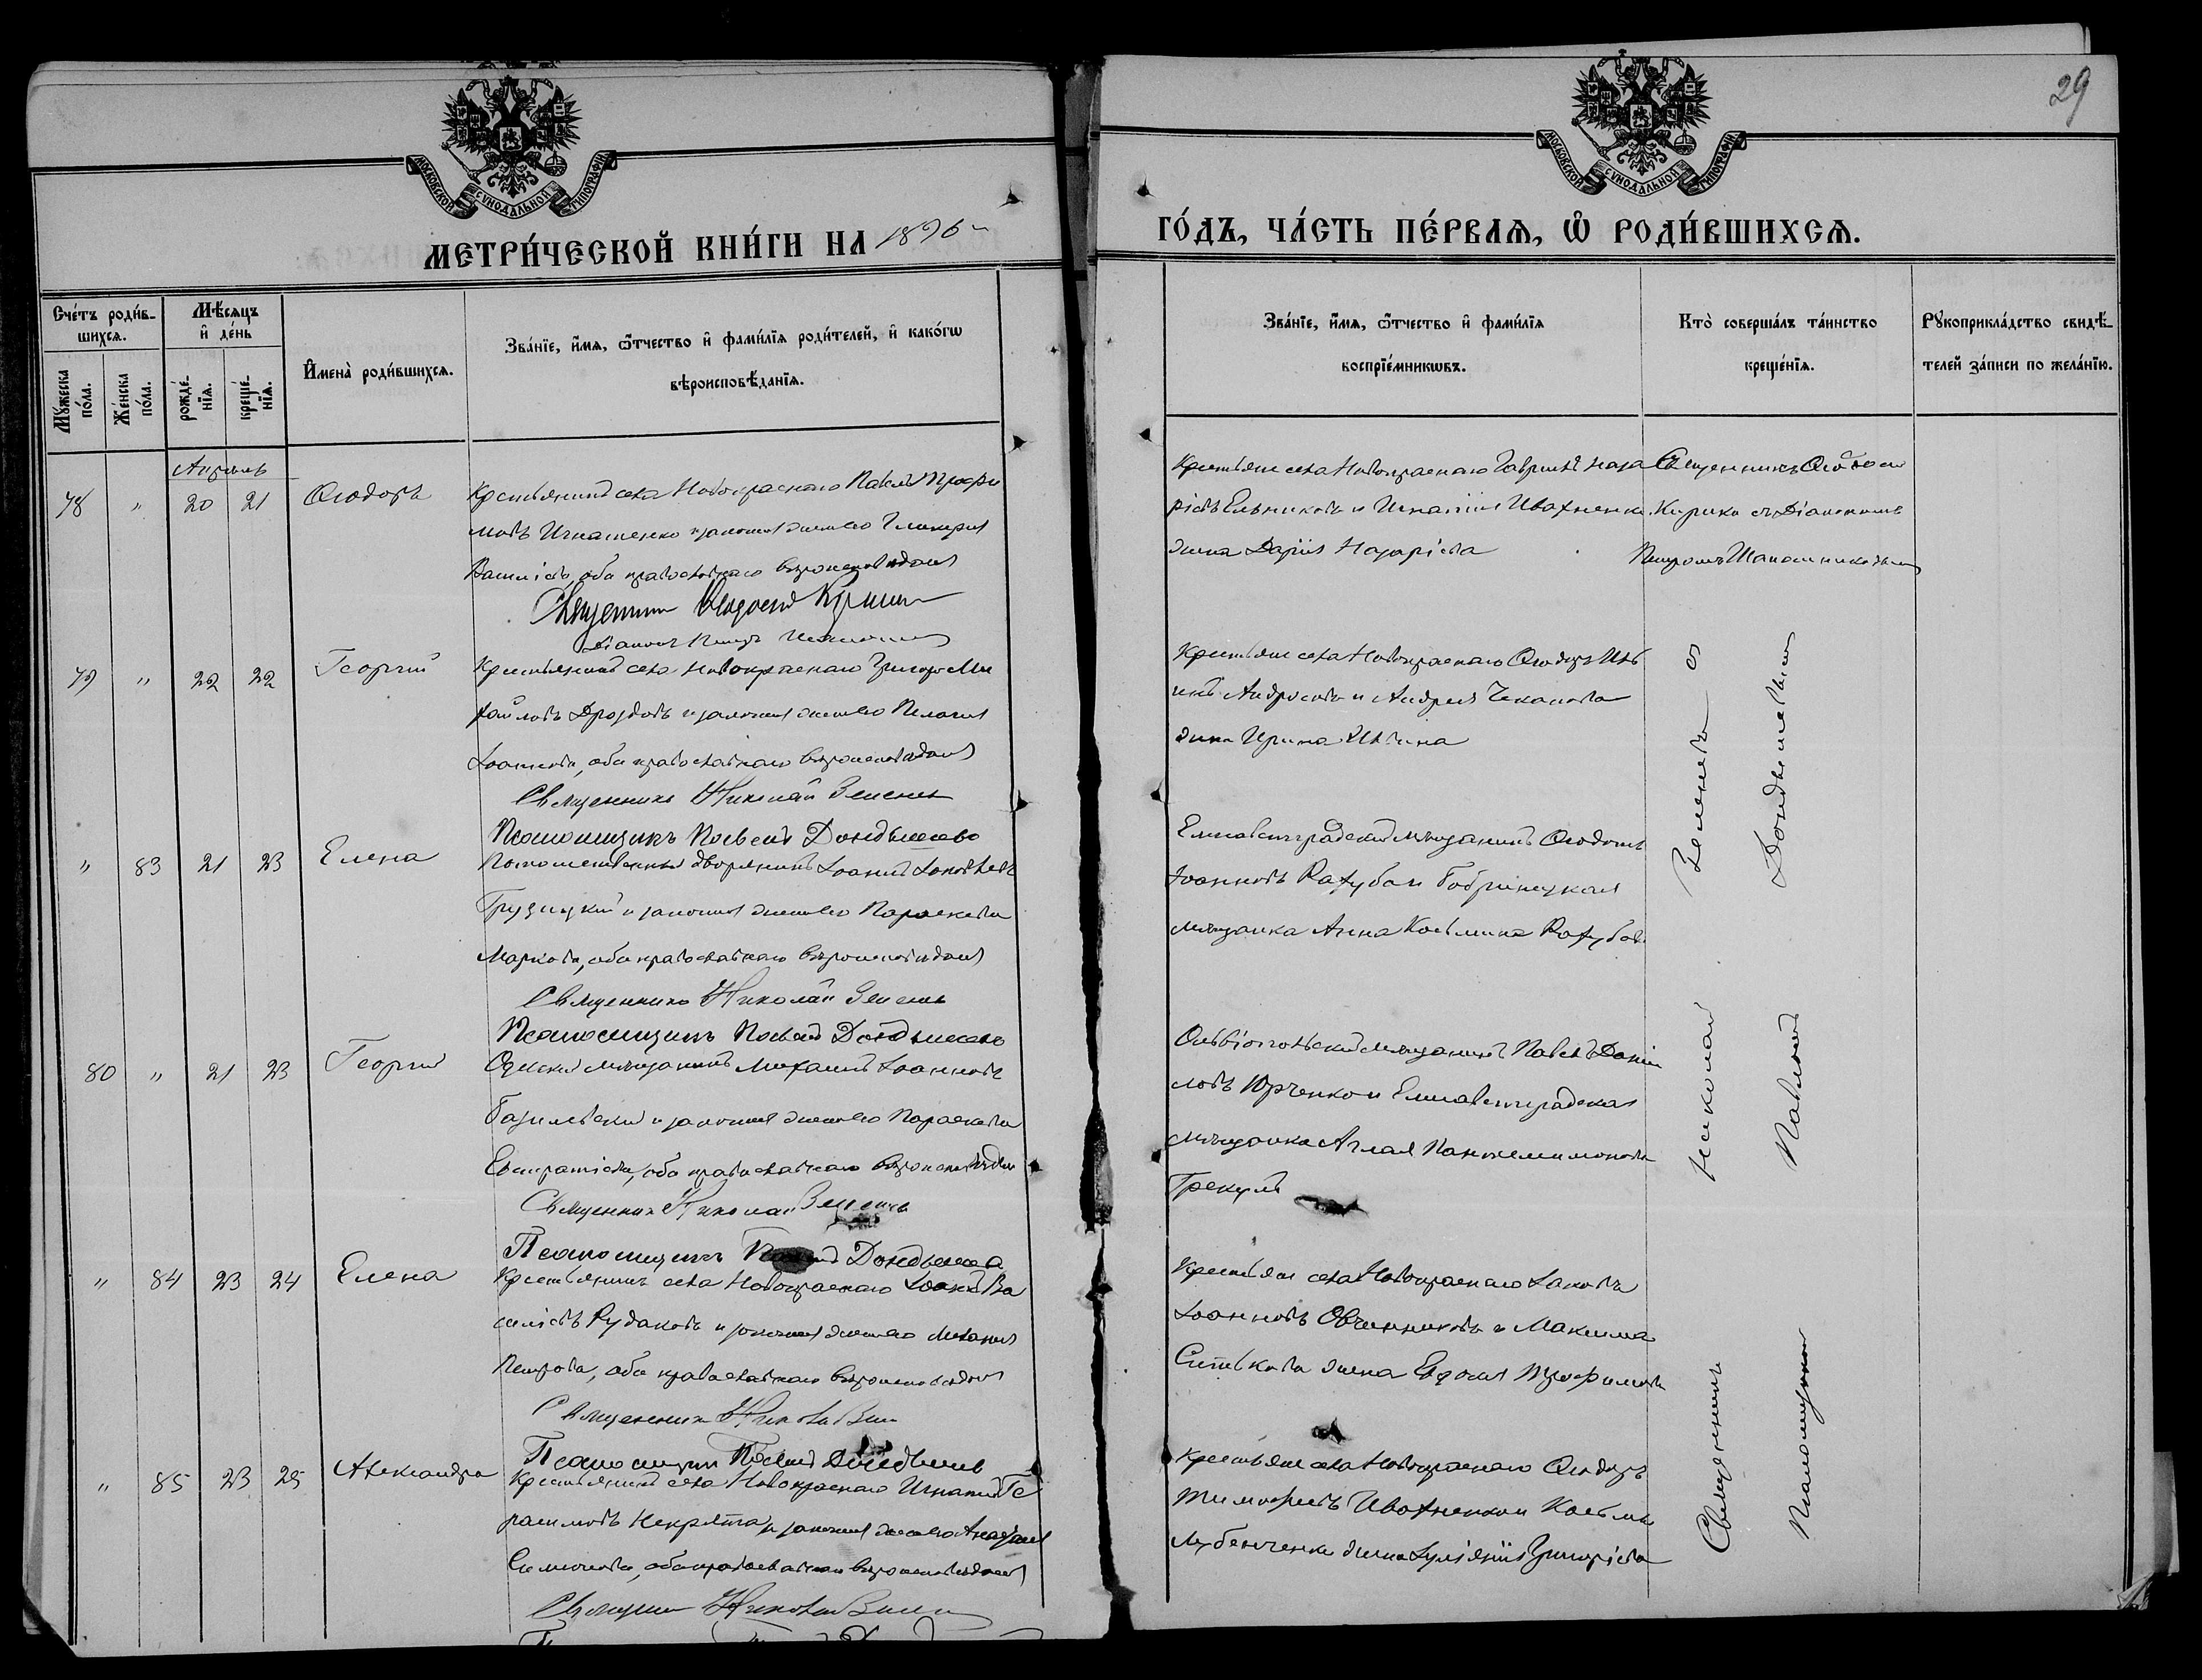 29
МОСКОВСКОЙ СУНОДАЛЬНОЙ ТИПОГРАФІИ
МОСКОВСКОЙ СУНОДАЛЬНОЙ ТИПОГРАФІИ
МЕТРИ́ЧЕСКОЙ КНИ́ГИ НА 1896
ГО́ДЪ, ЧА́СТЬ ПЕ́РВАЯ, Ѽ РОДИ́ВШИХСЯ.
Сче́тъ роди́в-
шихся.
Мꙋ́жеска
по́ла.
Же́нска
по́ла.
Мѣ́сяцъ
и҆ де́нь
рожде́-
нїя.
креще́-
нїя.
И҆мена̀ роди́вшихся.
Зва́нїе, и҆́мя, ѻ҆́тчество и҆ фами́лїя роди́телей, и҆ како́гѡ
вѣроисповѣ́данїя.
Зва́нїе, и҆́мя, ѻ҆́тчество и҆ фами́лїя
воспрїе́мникѡвъ.
Кто̀ соверша́лъ та́инство
креще́нїя.
Рꙋкоприкла́дство свидѣ́-
телей за́писи по жела́нїю.
Апрель
78 " 20 21 Ѳеодоръ
Крестьянинъ села Новокраснаго Павелъ Трофи
мовъ Игнатенко и законная жена его Гликерія
Василіева, оба православнаго вѣроисповѣданія
Священникъ
Діаконъ Петръ
Крестьяне села Новокраснаго Гавріилъ Наза
ріевъ Ельниковъ и Игнатія Ивахненка
жена Дарія Назаріева
Священникъ Ѳеодосій
Кирика съ Діакономъ
Петромъ Шапошниковымъ
79 " 22 22 Георгій
Крестьянинъ села Новокраснаго Григорій Ми
хайловъ Дроздовъ и законная жена его Пелагія
Іоаннова, оба православнаго вѣроисповѣданія
Священникъ Николай Зеленевъ
Псаломщикъ Павелъ
Крестьяне села Новокраснаго Ѳеодоръ Иль
инъ Андросовъ и Андрея Чеканова
жена Ирина Ильина
" 83 21 23 Елена
Потомственный дворянинъ Іоаннъ Іаковлевъ
Грузицкій и законная жена его Параскева
Маркова, оба православнаго вѣроисповѣданія
Священникъ Николай Зеленевъ
Псаломщикъ Павелъ
Елисаветградскій мѣщанинъ Ѳеодотъ
Іоанновъ Рахуба и Бобринецкая
мѣщанка Анна Косьмина Рахубова
80 " 21 23 Георгій
Одесскій мѣщанинъ Михаилъ Іоанновъ
Базилевскій и законная жена его Параскева
Евстратіева, оба православнаго вѣроисповѣданія
Священникъ Николай Зеленевъ
Псаломщикъ
Ольвіопольскій мѣщанинъ Павелъ Даніи
ловъ Юрченко и Елисаветградская
мѣщанка Аглая Пантелеимонова
Грекулъ
" 84 23 24 Елена
Крестьянинъ села Новокраснаго Іоаннъ Ва
силіевъ Рудаковъ и законная жена его Меланія
Петрова, оба православнаго вѣроисповѣданія
Священникъ Николай
Псаломщикъ Павелъ
Крестьяне села Новокраснаго Іаковъ
Іоанновъ Овчинниковъ и Максима
Ситькова жена Евдокія Трофимова
" 85 23 25 Александра
Крестьянинъ села Новокраснаго Игнатій Ге
расимовъ Некрята и законная жена его Анастасія
Симонова, оба православнаго вѣроисповѣданія
Священникъ Николай
Крестьяне села Новокраснаго Ѳеодоръ
Тимофеевъ Ивахненко и Косьмы
Лубенченка жена Іуліанія Григоріева
Священникъ Николай Зеленевъ съ
Псаломщикомъ Павломъ